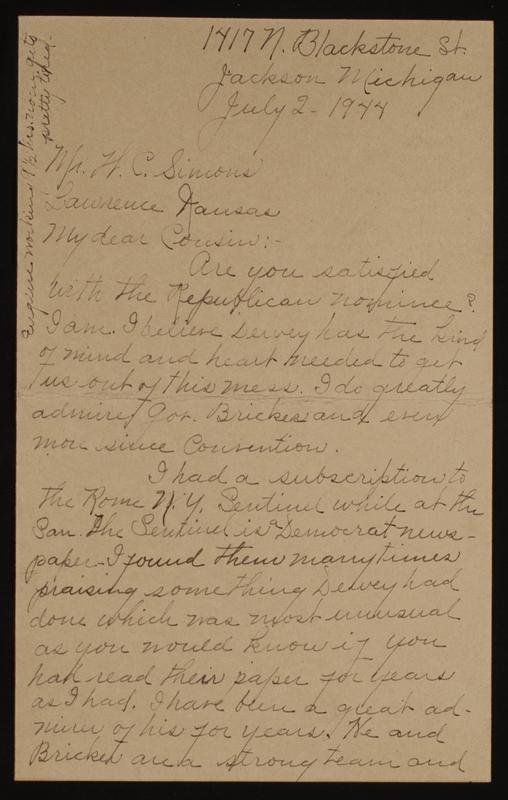 1417 N. Blackstone St.
Jackson Michigan
July 2 - 1944
Mr. W. C. Simons
Lawrence Kansas
My dear Cousin:-
Are you satisfied
with the Republican nominee?
I am. I believe Dewey has the kind
of mind and heart needed to get
us out of this mess. I do greatly
admire Gov. Bricker and even
more since Convention.
I had a subscription to
the Rome N.Y. Sentinel while at the
San. The Sentinel is a Democrat news-
paper - I found them many times
praising something Dewey had
done which was most unusual
as you would know if you
had read their paper for years
as I had. I have been a great ad-
mirer of his for years. He and
Bricker are a strong team and
Eugene working 9½ hrs. now, gets
pretty tired.